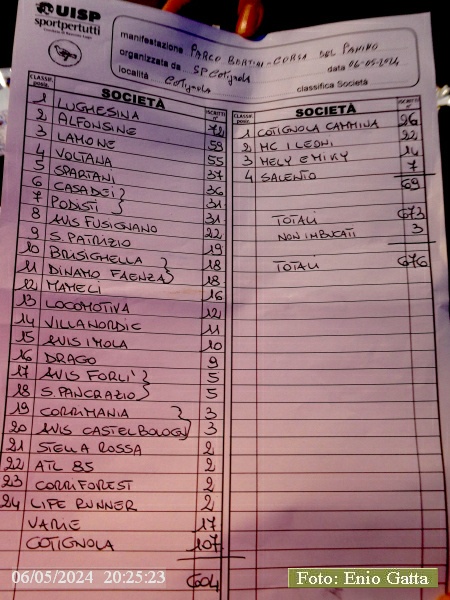 UISP
sportpertutti
manifestazione PARCO BERTINI - CORSA DEL PANINO
organizzata da SP Cotignola data 06-05-2024
località Cotignola classifica Società
CLASSIF. posiz. SOCIETÀ ISCRITTI n°
1 LUGHESINA 72
2 ALFONSINE 59
3 LAMONE 55
4 VOLTANA 37
5 SPARTANI 36
6 CASADEI 31
7 PODISTI 31
8 AVIS FUSIGNANO 22
9 S. PATRIZIO 19
10 BRISIGHELLA 18
11 DINAMO FAENZA 18
12 MAMELI 16
13 LOCOMOTIVA 12
14 VILLANORDIC 11
15 AVIS IMOLA 10
16 DRAGO 9
17 AVIS FORLI' 5
18 S. PANCRAZIO 5
19 CORRIMANIA 3
20 AVIS CASTELBOLOGN 3
21 STELLA ROSSA 2
22 ATL 85 2
23 CORRIFOREST 2
24 LIFE RUNNER 2
VARIE 17
COTIGNOLA 107
604
CLASSIF. posiz. SOCIETÀ ISCRITTI n°
1 COTIGNOLA CAMMINA 26
2 MC I LEONI 22
3 HELY E MIKY 14
4 SALENTO 7
69
TOTALI 673
NON IMBUCATI 3
TOTALI 676
06/05/2024 20:25:23
Foto: Enio Gatta